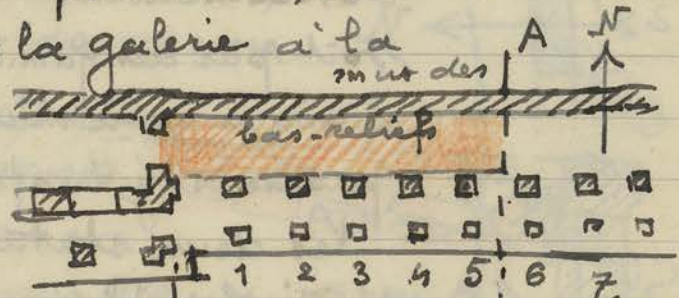 la galerie à la
mur des A N
bas-reliefs
1 2 3 4 5 6 7